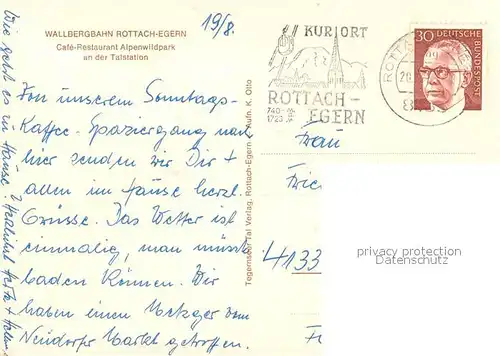 WALLBERGBAHN ROTTACH-EGERN
Café-Restaurant Alpenwildpark
an der Talstation
19/8.
Von unserem Sonntags-
Kaffee-Spaziergang nach
hier senden wir Dir +
allen im Hause herzl.
Grüsse. Das Wetter ist
einmalig, man müsste
baden können. Wir
haben einen Metzger vom
Neudorfer Markt getroffen.
Wie geht es im Hause?
Tegernsee Tal Verlag, Rottach-Egern
Aufn. K. Otto
KURORT
ROTTACH-
EGERN
740-
1723
ROTTA
20.
30 DEUTSCHE
BUNDESPOST
Frau
4133
privacy protection
Datenschutz